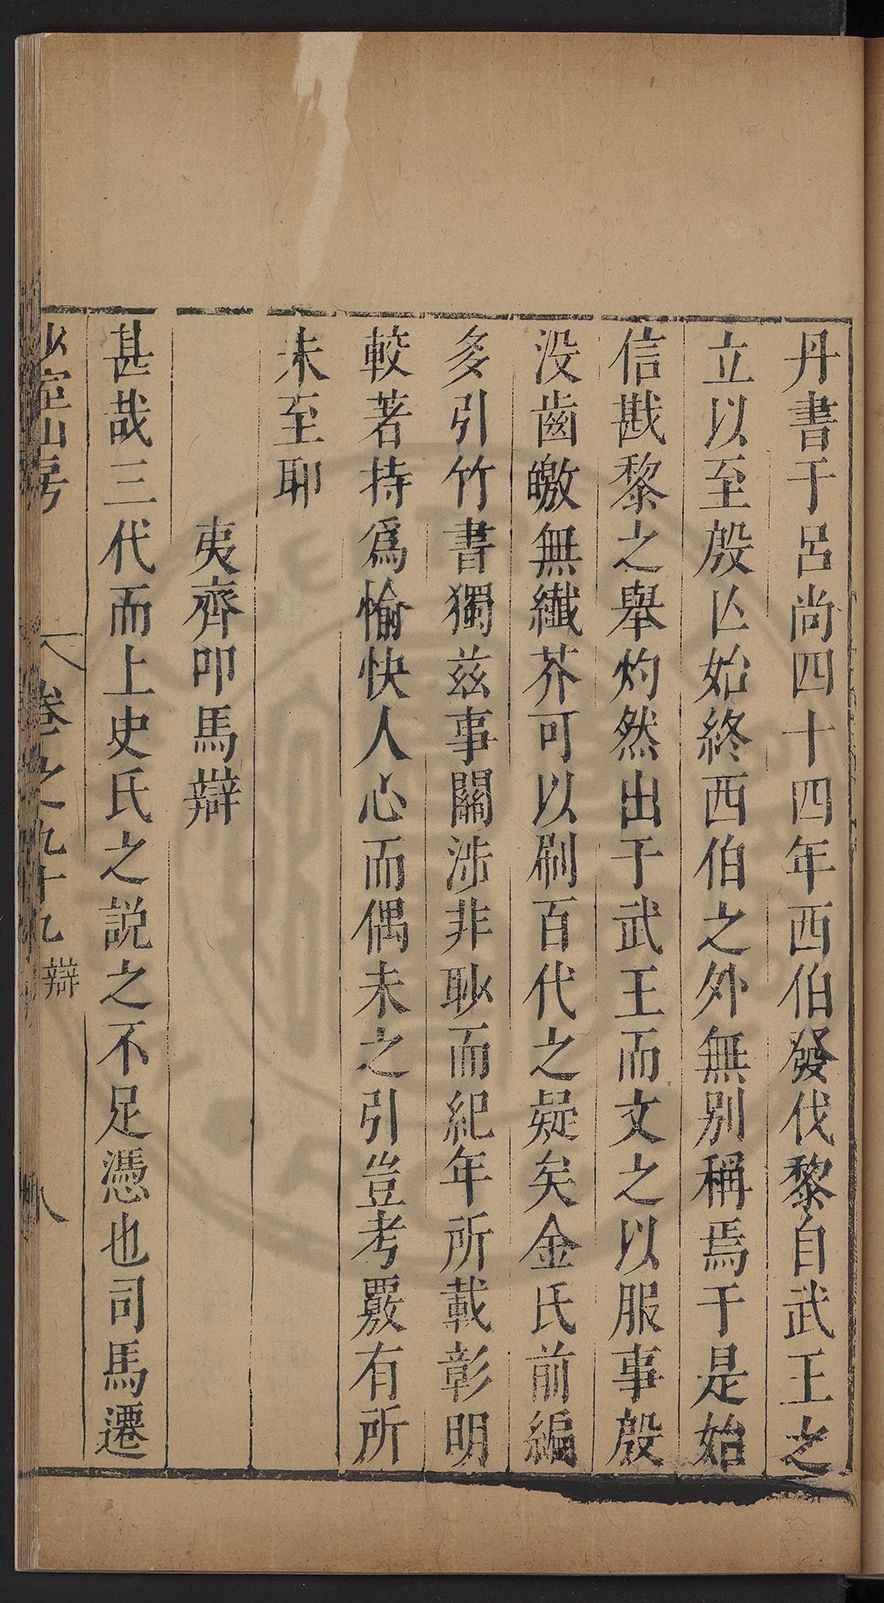 丹書于呂尚四十四年西伯發伐黎自武王之
立以至殷亾始終西伯之外無別稱焉于是始
信戡黎之舉灼然出于武王而文之以服事殷
没齒皦無纖芥可以刷百代之疑矣金氏前編
多引竹書獨茲事關涉非眇而紀年所載彰明
較著持爲愉快人心而偶未之引豈考覈有所
未至耶
夷齊叩馬辯
甚哉三代而上史氏之説之不足憑也司馬遷
少室山房 卷之九十九 辯 八